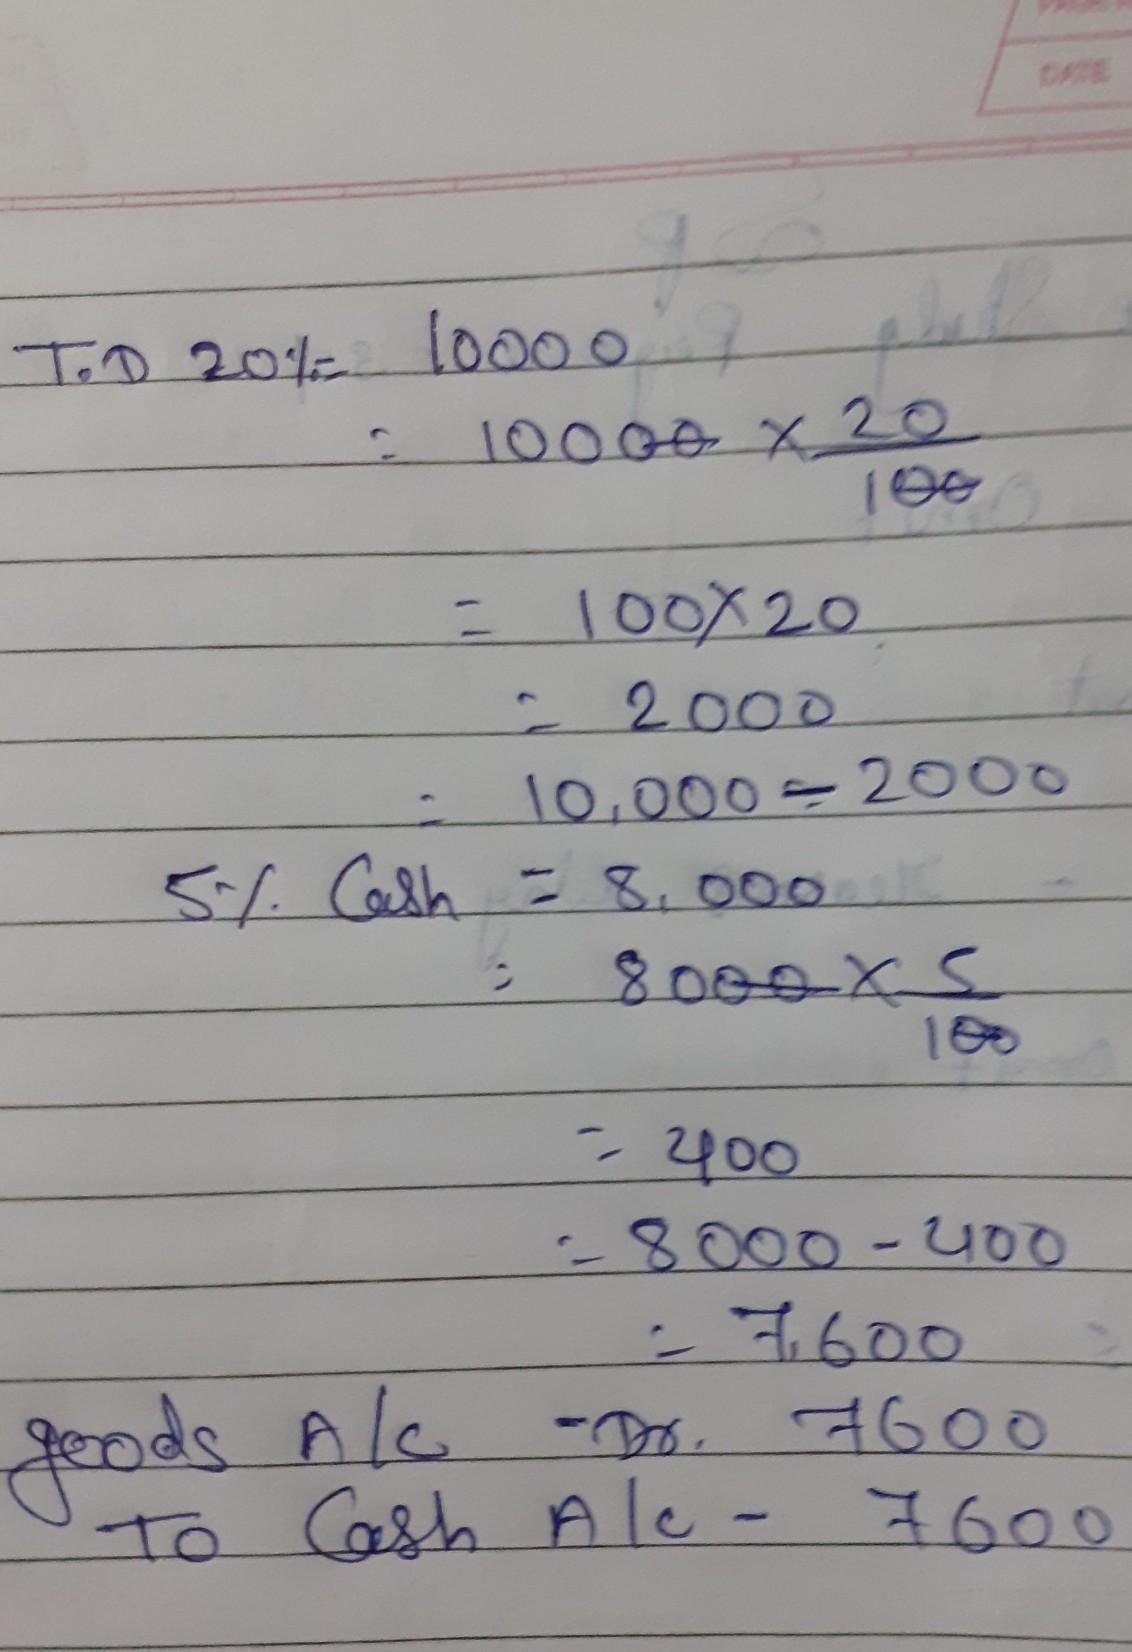 DATE
T.D 20%= 10000
= 10000 × 20
100
= 100×20
= 2000
= 10,000 - 2000
5% Cash = 8,000
= 8000 × 5
100
= 400
= 8000 - 400
= 7,600
goods A/c - Dr. 7600
To Cash A/c - 7600